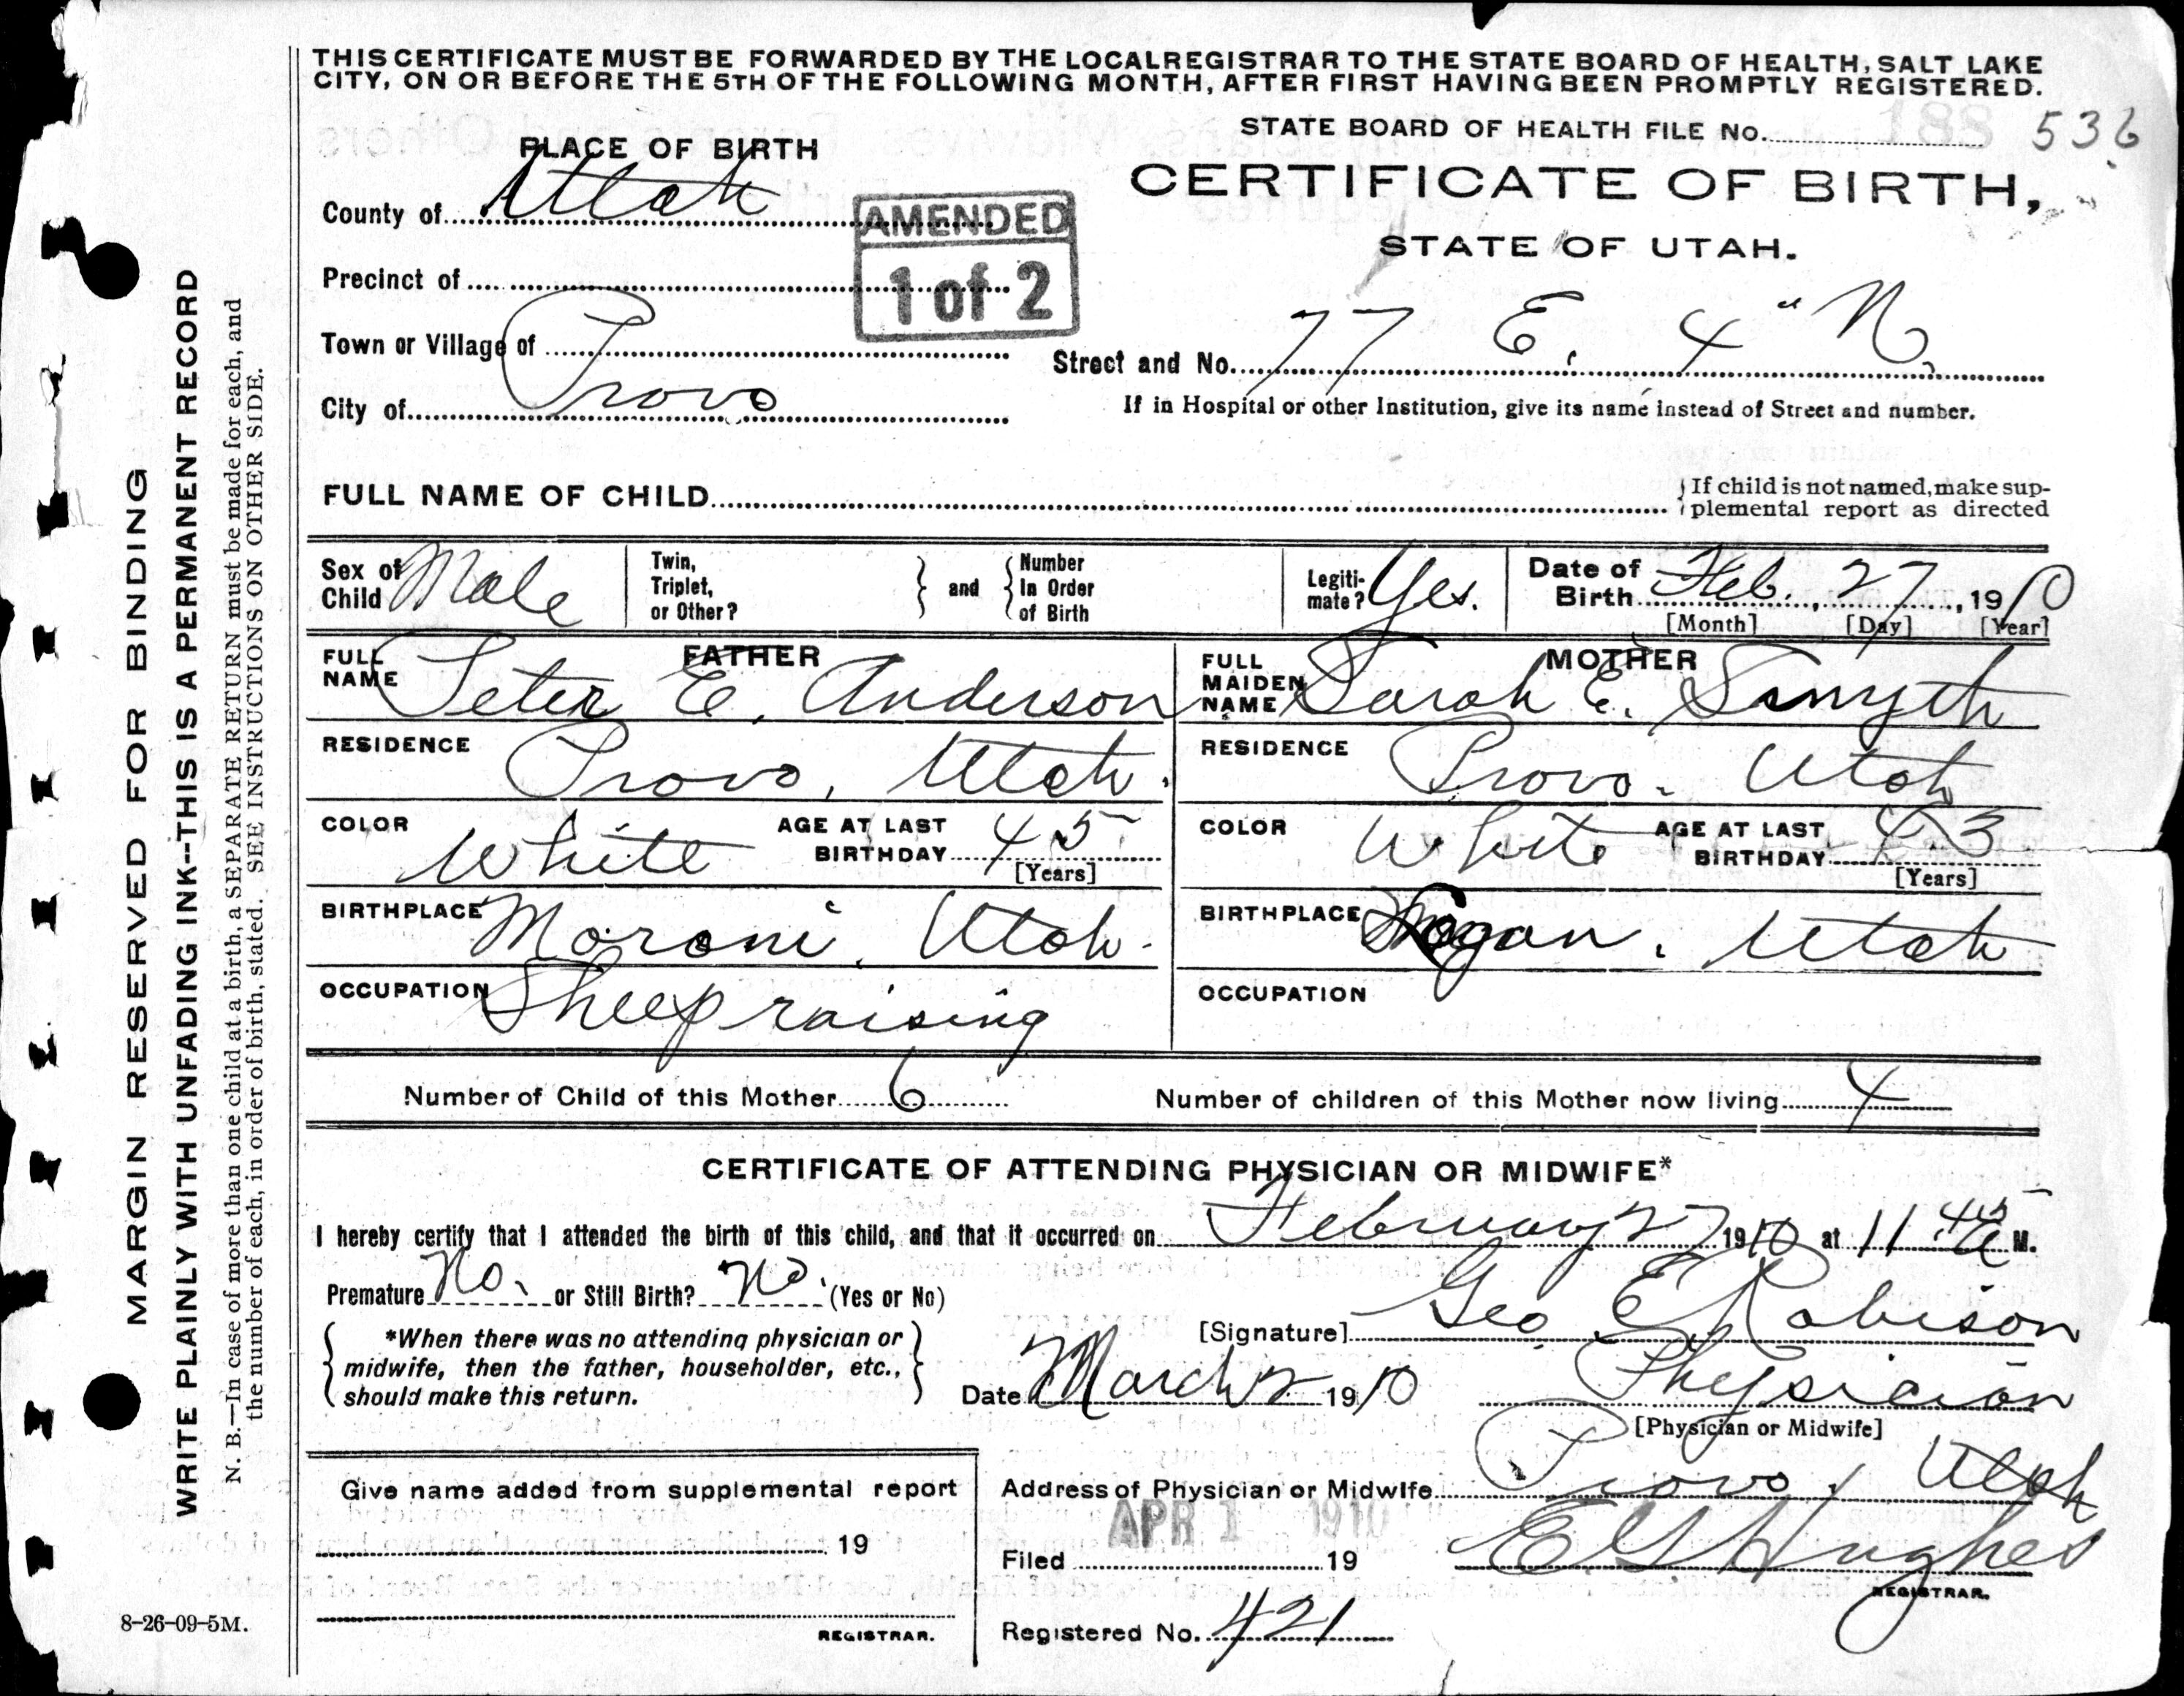 THIS CERTIFICATE MUST BE FORWARDED BY THE LOCAL REGISTRAR TO THE STATE BOARD OF HEALTH, SALT LAKE
CITY, ON OR BEFORE THE 5TH OF THE FOLLOWING MONTH, AFTER FIRST HAVING BEEN PROMPTLY REGISTERED.
STATE BOARD OF HEALTH FILE No. 188 536
PLACE OF BIRTH
CERTIFICATE OF BIRTH,
STATE OF UTAH.
County of Utah
AMENDED
1 of 2
Precinct of
Town or Village of
City of Provo
Street and No. 77 E. 4" N.
If in Hospital or other Institution, give its name instead of Street and number.
FULL NAME OF CHILD
If child is not named, make sup-
plemental report as directed
Sex of Child Male
Twin, Triplet, or Other?
and
Number In Order of Birth
Legiti-mate? Yes.
Date of Birth Feb. 27, 1910
[Month] [Day] [Year]
FATHER
FULL NAME Peter E. Anderson
RESIDENCE Provo, Utah.
COLOR White
AGE AT LAST BIRTHDAY 45
[Years]
BIRTHPLACE Moroni, Utah.
OCCUPATION Sheep raising
MOTHER
FULL MAIDEN NAME Sarah E. Smyth
RESIDENCE Provo. Utah
COLOR White
AGE AT LAST BIRTHDAY 43
[Years]
BIRTHPLACE Logan, Utah
OCCUPATION
Number of Child of this Mother 6
Number of children of this Mother now living 4
CERTIFICATE OF ATTENDING PHYSICIAN OR MIDWIFE*
I hereby certify that I attended the birth of this child, and that it occurred on February 27 1910 at 11 45 a M.
Premature No. or Still Birth? No. (Yes or No)
*When there was no attending physician or
midwife, then the father, householder, etc.,
should make this return.
[Signature] Geo E Robison
Date March 2 1910
Physician
[Physician or Midwife]
Give name added from supplemental report
19
REGISTRAR.
Address of Physician or Midwife Provo, Utah
APR 1 1910
Filed 19
E G Hughes
REGISTRAR.
Registered No. 421
8-26-09-5M.
MARGIN RESERVED FOR BINDING
WRITE PLAINLY WITH UNFADING INK--THIS IS A PERMANENT RECORD
N. B.—In case of more than one child at a birth, a SEPARATE RETURN must be made for each, and
the number of each, in order of birth, stated. SEE INSTRUCTIONS ON OTHER SIDE.